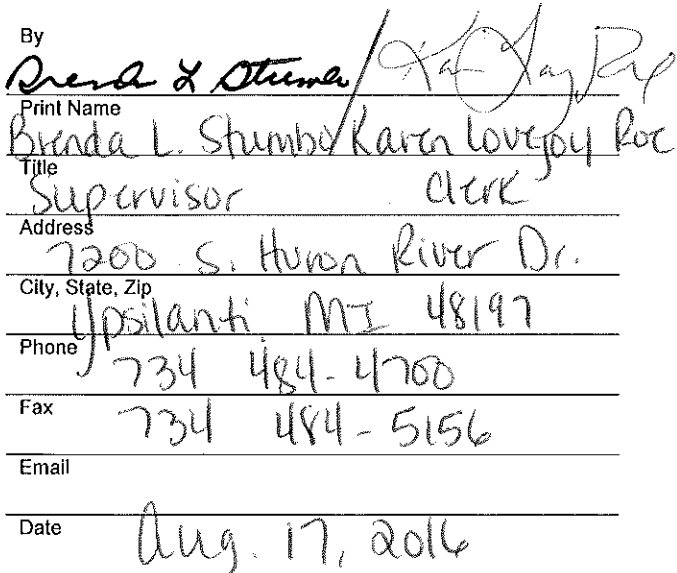 By
Brenda L Stumbo / Karen Lovejoy Roe
Print Name
Brenda L. Stumbo / Karen Lovejoy Roe
Title
Supervisor Clerk
Address
7200 S. Huron River Dr.
City, State, Zip
Ypsilanti MI 48197
Phone
734 484-4700
Fax
734 484-5156
Email
Date
Aug. 17, 2016